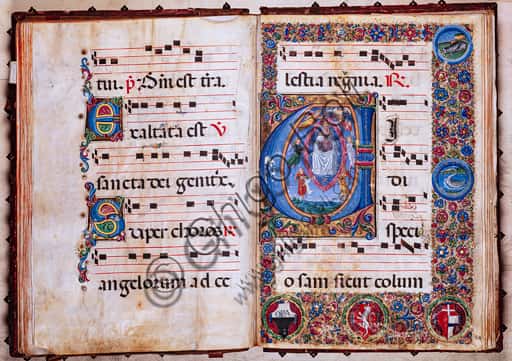 tui. p̃. Qui est tira
Exaltata est V
sancta dei genitr̃.
Super choros R
angelorum ad ce
lestia regnia. R.
VI
di
speci
o sam sicut colum
Ghigo